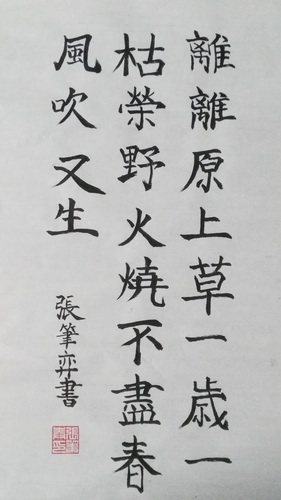 離離原上草一歲一
枯榮野火燒不盡春
風吹又生
張筆弈書